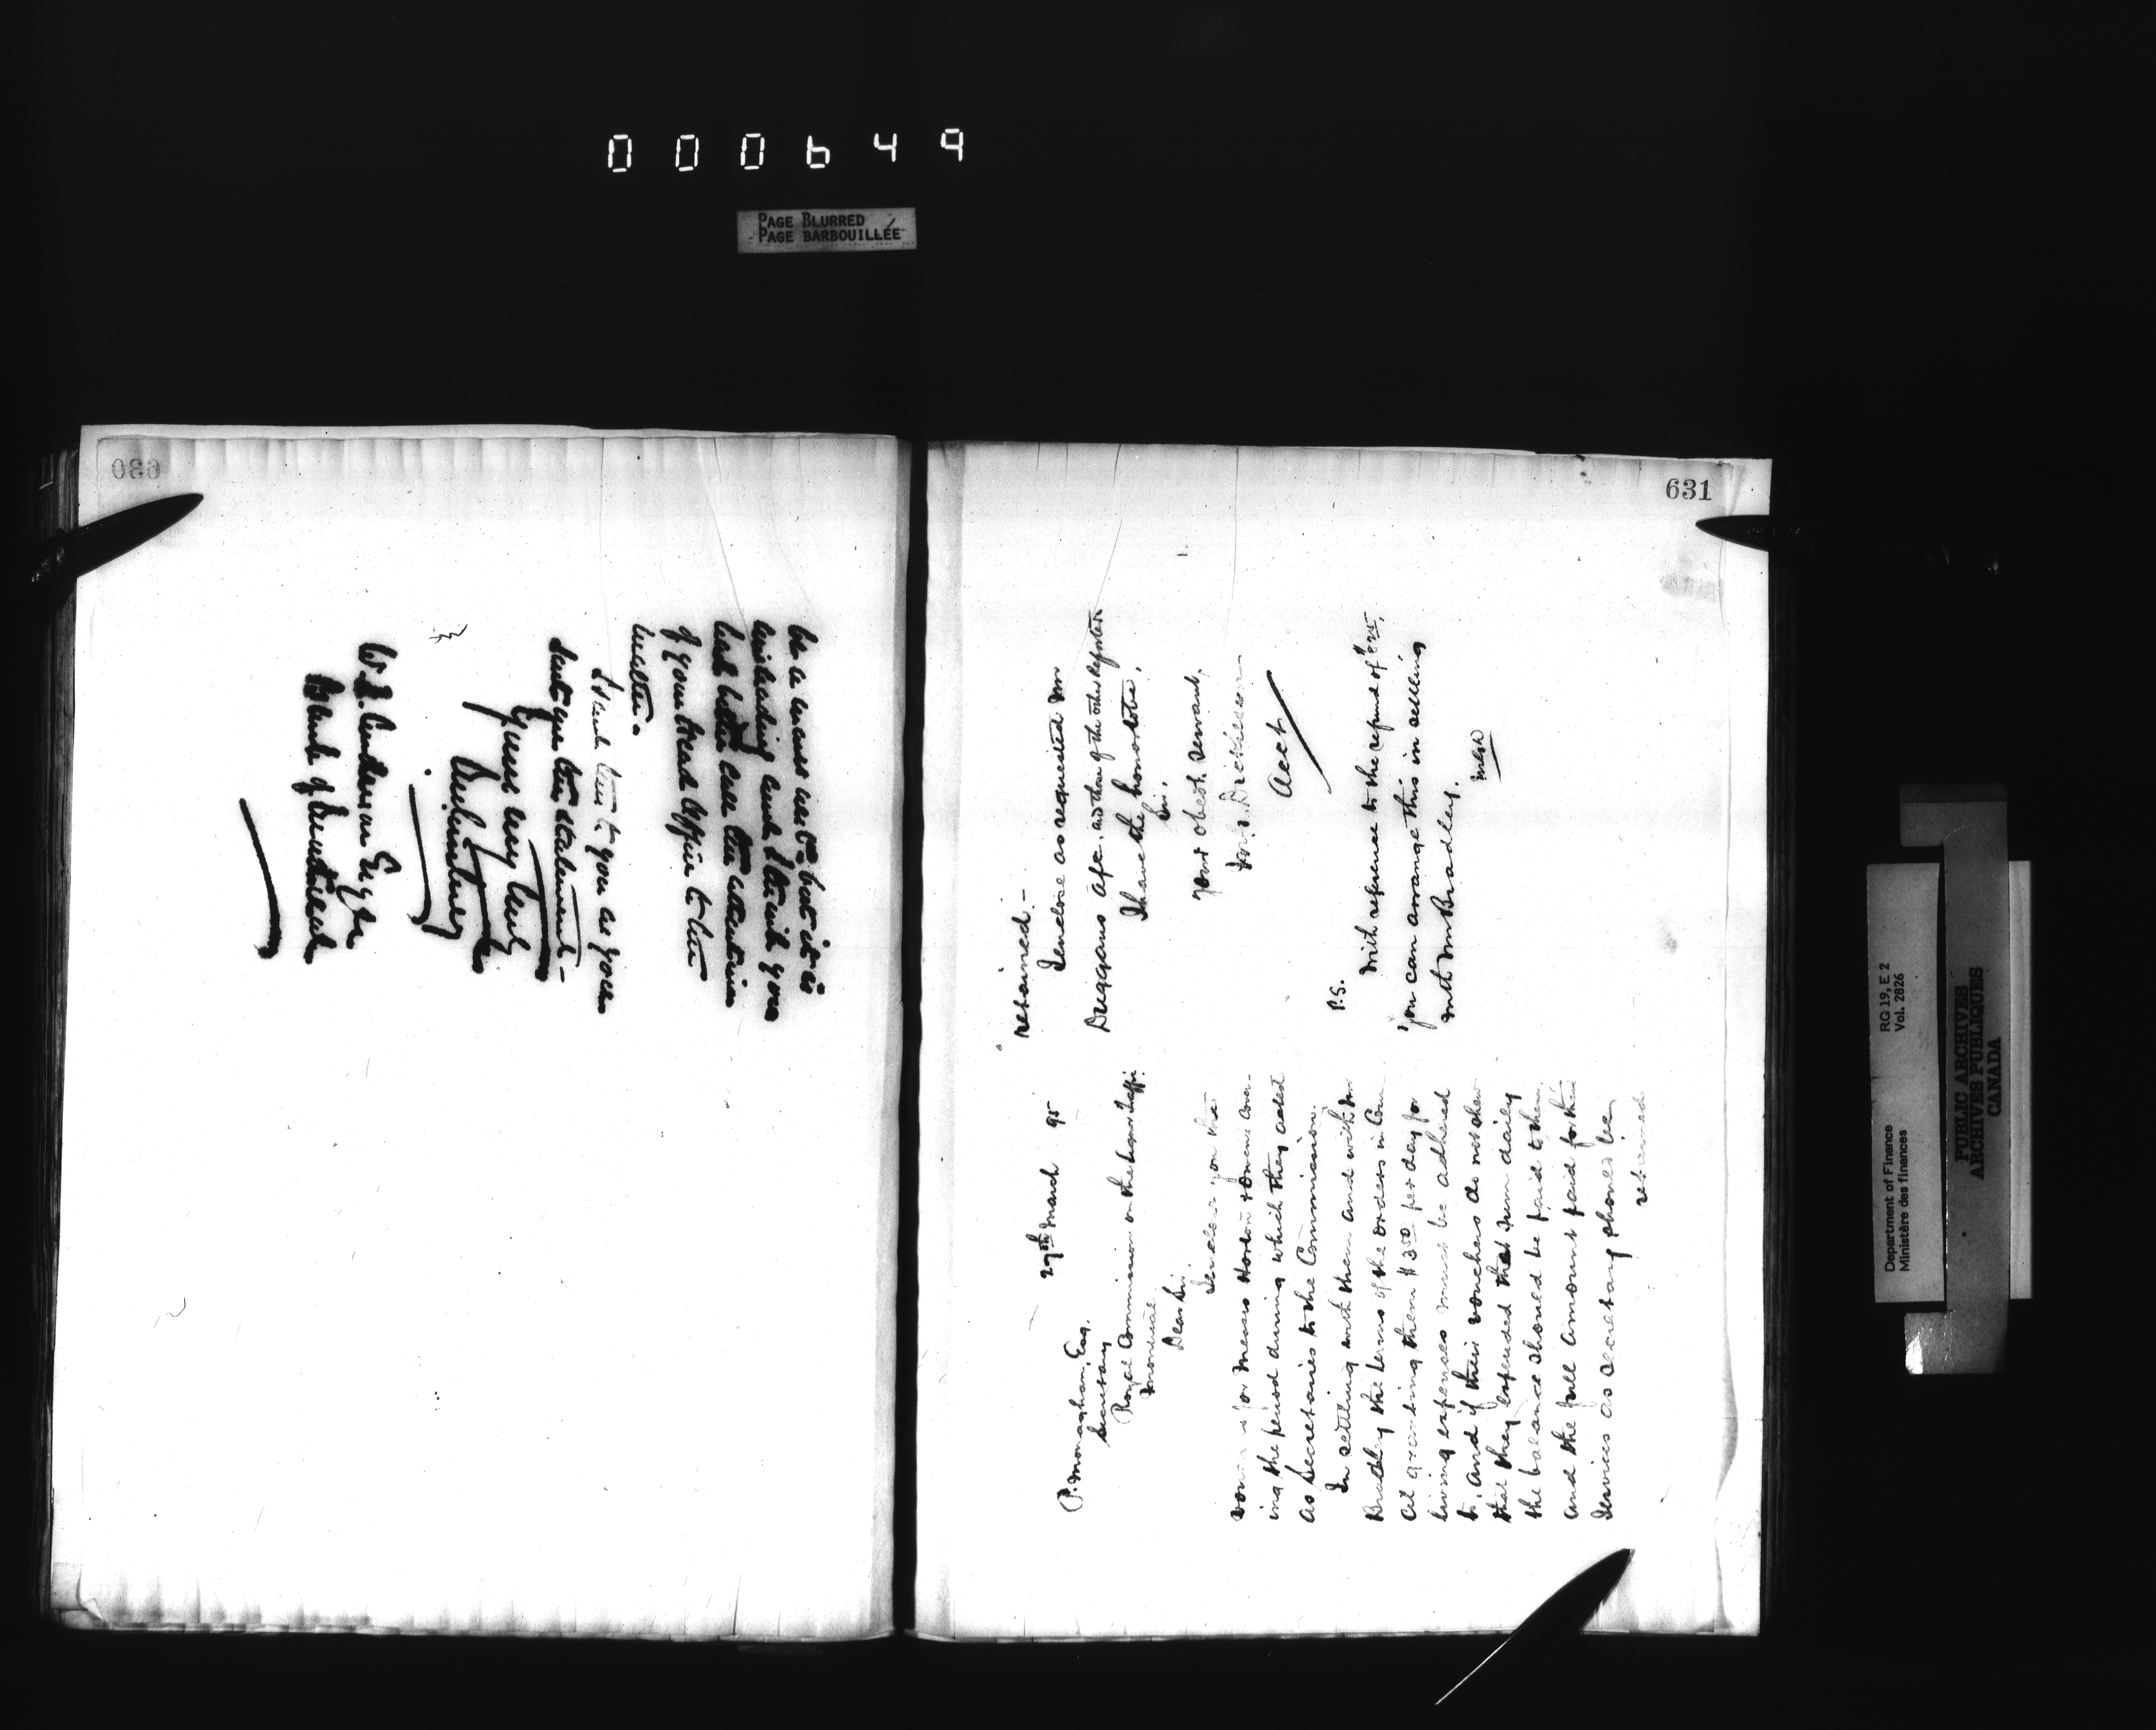 000649
PAGE BLURRED
PAGE BARBOUILLÉE
630
be a mere but it is
misleading and I think you
had better call the attention
of your Head Office to the
matter.
I send this to you as you
sent me the statement-
Yours very truly
W. J. Anderson Esq
Bank of Montreal
631
29th March 95
P. Monaghan, Esq.
Secretary
Royal Commission on the Liquor Traffic
Montreal
Dear Sir,
I enclose you the
for Messrs
ing the period during which they acted
as Secretaries to the Commission.
In settling with them and with Mr
Bradley the terms of the orders in Coun
cil granting them $3.50 per day for
living expenses must be adhered
to, and if their vouchers do not shew
that they expended that sum daily
the balance should be paid to them
and the full amount paid for their
services as secretary should be
retained
retained.-
I enclose as requested Mr
Duggans a/c. and those of the other Reporters
I have the honor to be,
Sir,
Your obedt. servant,
Dickieson
Acct
P.S.
With reference to the refund of
you can arrange this in settling
with Mr Bradley.
Department of Finance
Ministère des finances
RG 19, E 2
Vol. 2826
PUBLIC ARCHIVES
ARCHIVES PUBLIQUES
CANADA